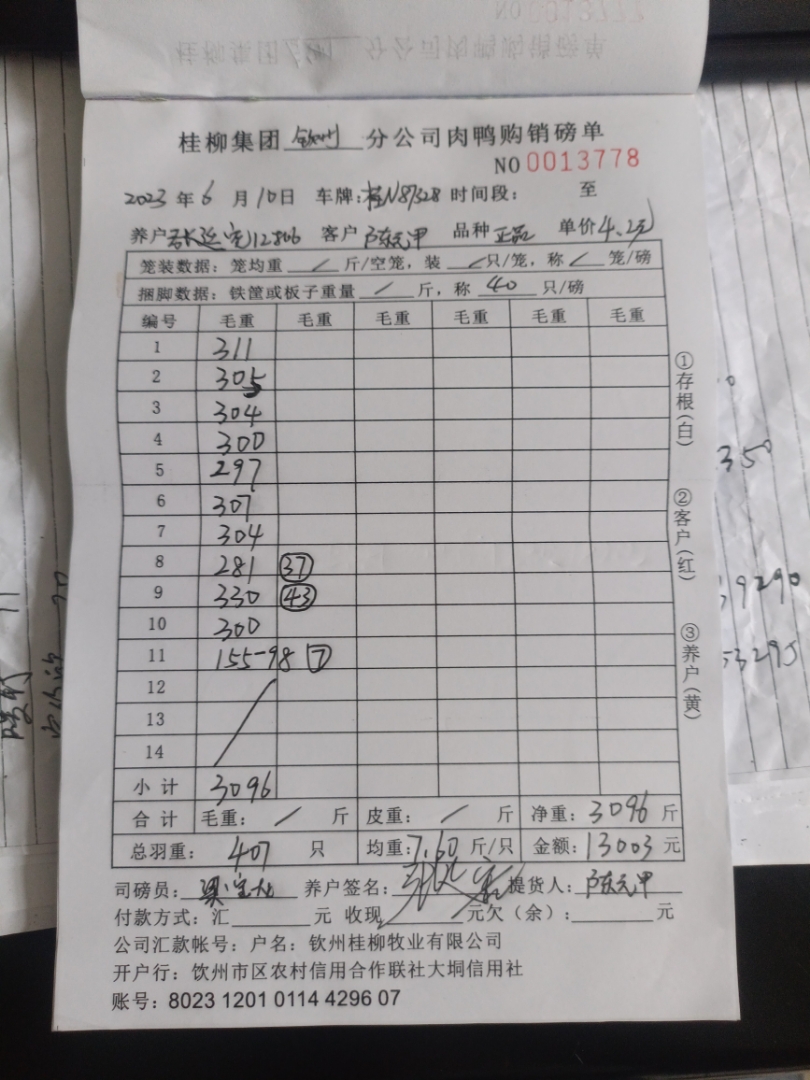 NO 0013777
桂柳集团 分公司肉鸭购销磅单
桂柳集团 钦州 分公司肉鸭购销磅单
NO 0013778
2023 年 6 月 10 日 车牌:桂N87328 时间段: 至
养户 12806 客户 卢东元甲 品种 正品 单价 4.2元
笼装数据:笼均重 / 斤/空笼,装 / 只/笼,称 / 笼/磅
捆脚数据:铁筐或板子重量 / 斤,称 40 只/磅
编号 毛重 毛重 毛重 毛重 毛重 毛重
1 311
2 305
3 304
4 300
5 297
6 307
7 304
8 281 37
9 330 43
10 300
11 155-98 7
12
13
14
小计 3096
合计 毛重: / 斤 皮重: / 斤 净重: 3096 斤
总羽重: 407 只 均重: 7.60 斤/只 金额: 13003 元
司磅员: 养户签名: 提货人: 卢东元甲
付款方式:汇 元 收现 元欠(余): 元
公司汇款帐号:户名:钦州桂柳牧业有限公司
开户行:饮州市区农村信用合作联社大垌信用社
账号:8023 1201 0114 4296 07
①存根(白)
②客户(红)
③养户(黄)
350
9290
3295